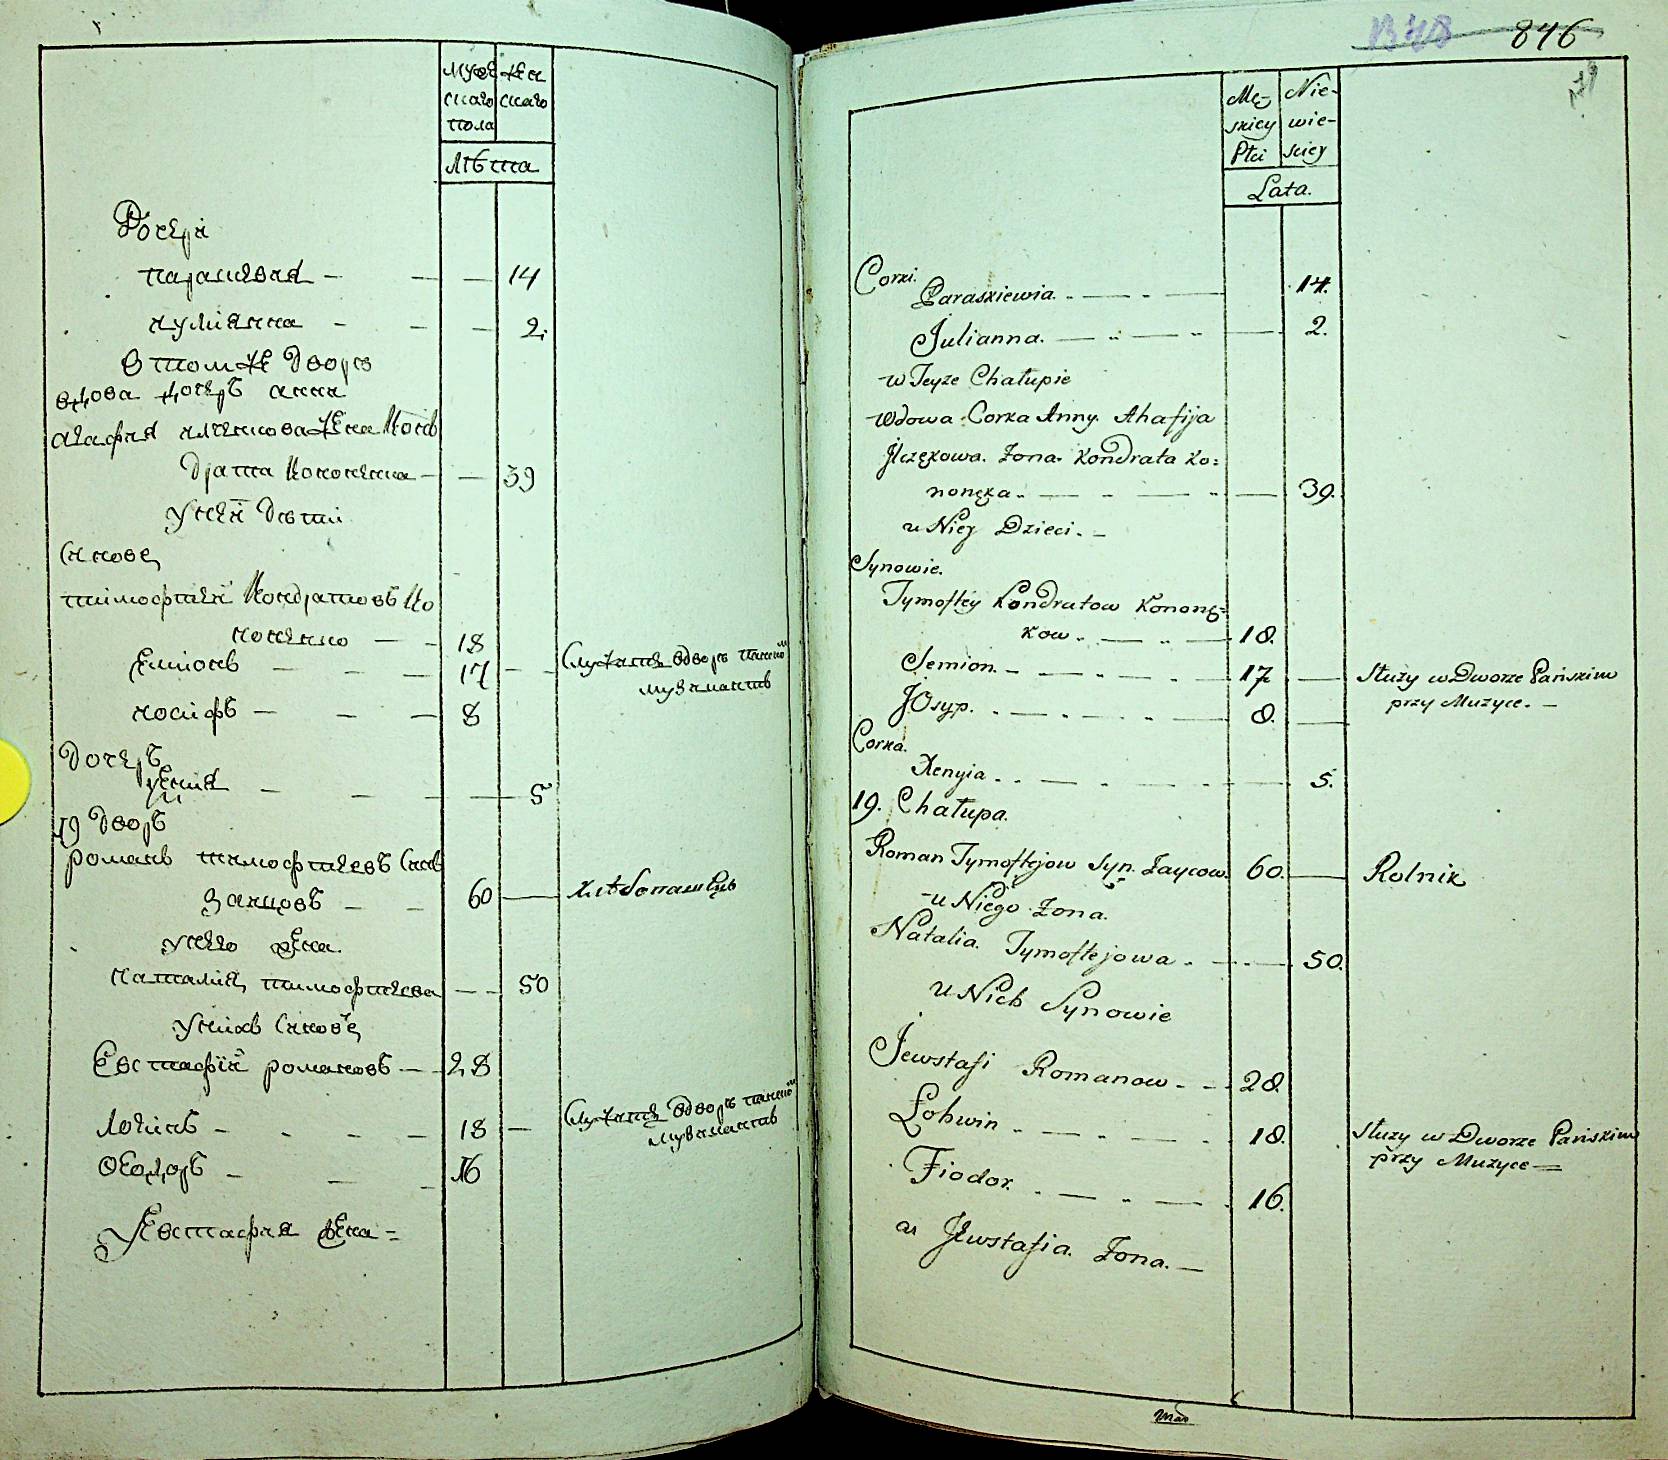 муже
скаго
пола
жен
скаго
лѣта
Дочери
парасковия — — — 14
иулиянна — — — 2.
втомже дворѣ
вдова дочерь анны
агафия илченкова жена Кон
драта Кононенка — — 39
унеи дѣти
Синове
тимофтеи Кондратовъ Ко
ноненко — — 18
семионъ — — — 17 — — Служитъ вдворѣ панском
музикантъ
иосифъ — — — 8
Дочерь
ксения — — — — 5
19 дворъ
романъ тимофтеевъ Синъ
Заицовъ — — 60 — хлѣбопашецъ
унего жена
наталия тимофтеева — — 50
унихъ Синове
Евстафии романовъ — — 28
логинъ — — — — 18 — Служитъ вдворѣ панском
музикантъ
Феодоръ — — — 16
У Евстафия жена =
846
Mę-
skiey
Płci
Nie-
wie-
skiey
Lata.
Corki.
Paraskiewia. — — 14.
Julianna. — — — 2.
w Teyże Chałupie
Wdowa Corka Anny. Ahafija
Ilczękowa. Żona. Kondrata Ko=
nonęka. — — — 39.
u Niey Dzieci. —
Synowie.
Tymoftey Kondratow Kononę=
kow. — — 18.
Semion. — — — 17. — Służy w Dworze Pańskim
przy Muzyce. —
JOsyp. — — — 8. —
Corka.
Xenyia. — — — 5.
19. Chałupa.
Roman Tymoftejow Syn. Zaycow. 60. — Rolnik
u Niego Żona.
Natalia. Tymoftejowa. — — 50.
u Nich Synowie
Jewstafi Romanow. — — 28.
Łohwin. — — — 18. Służy w Dworze Pańskim
przy Muzyce —
Fiodor. — — — 16.
a Jewstafia. Żona. —